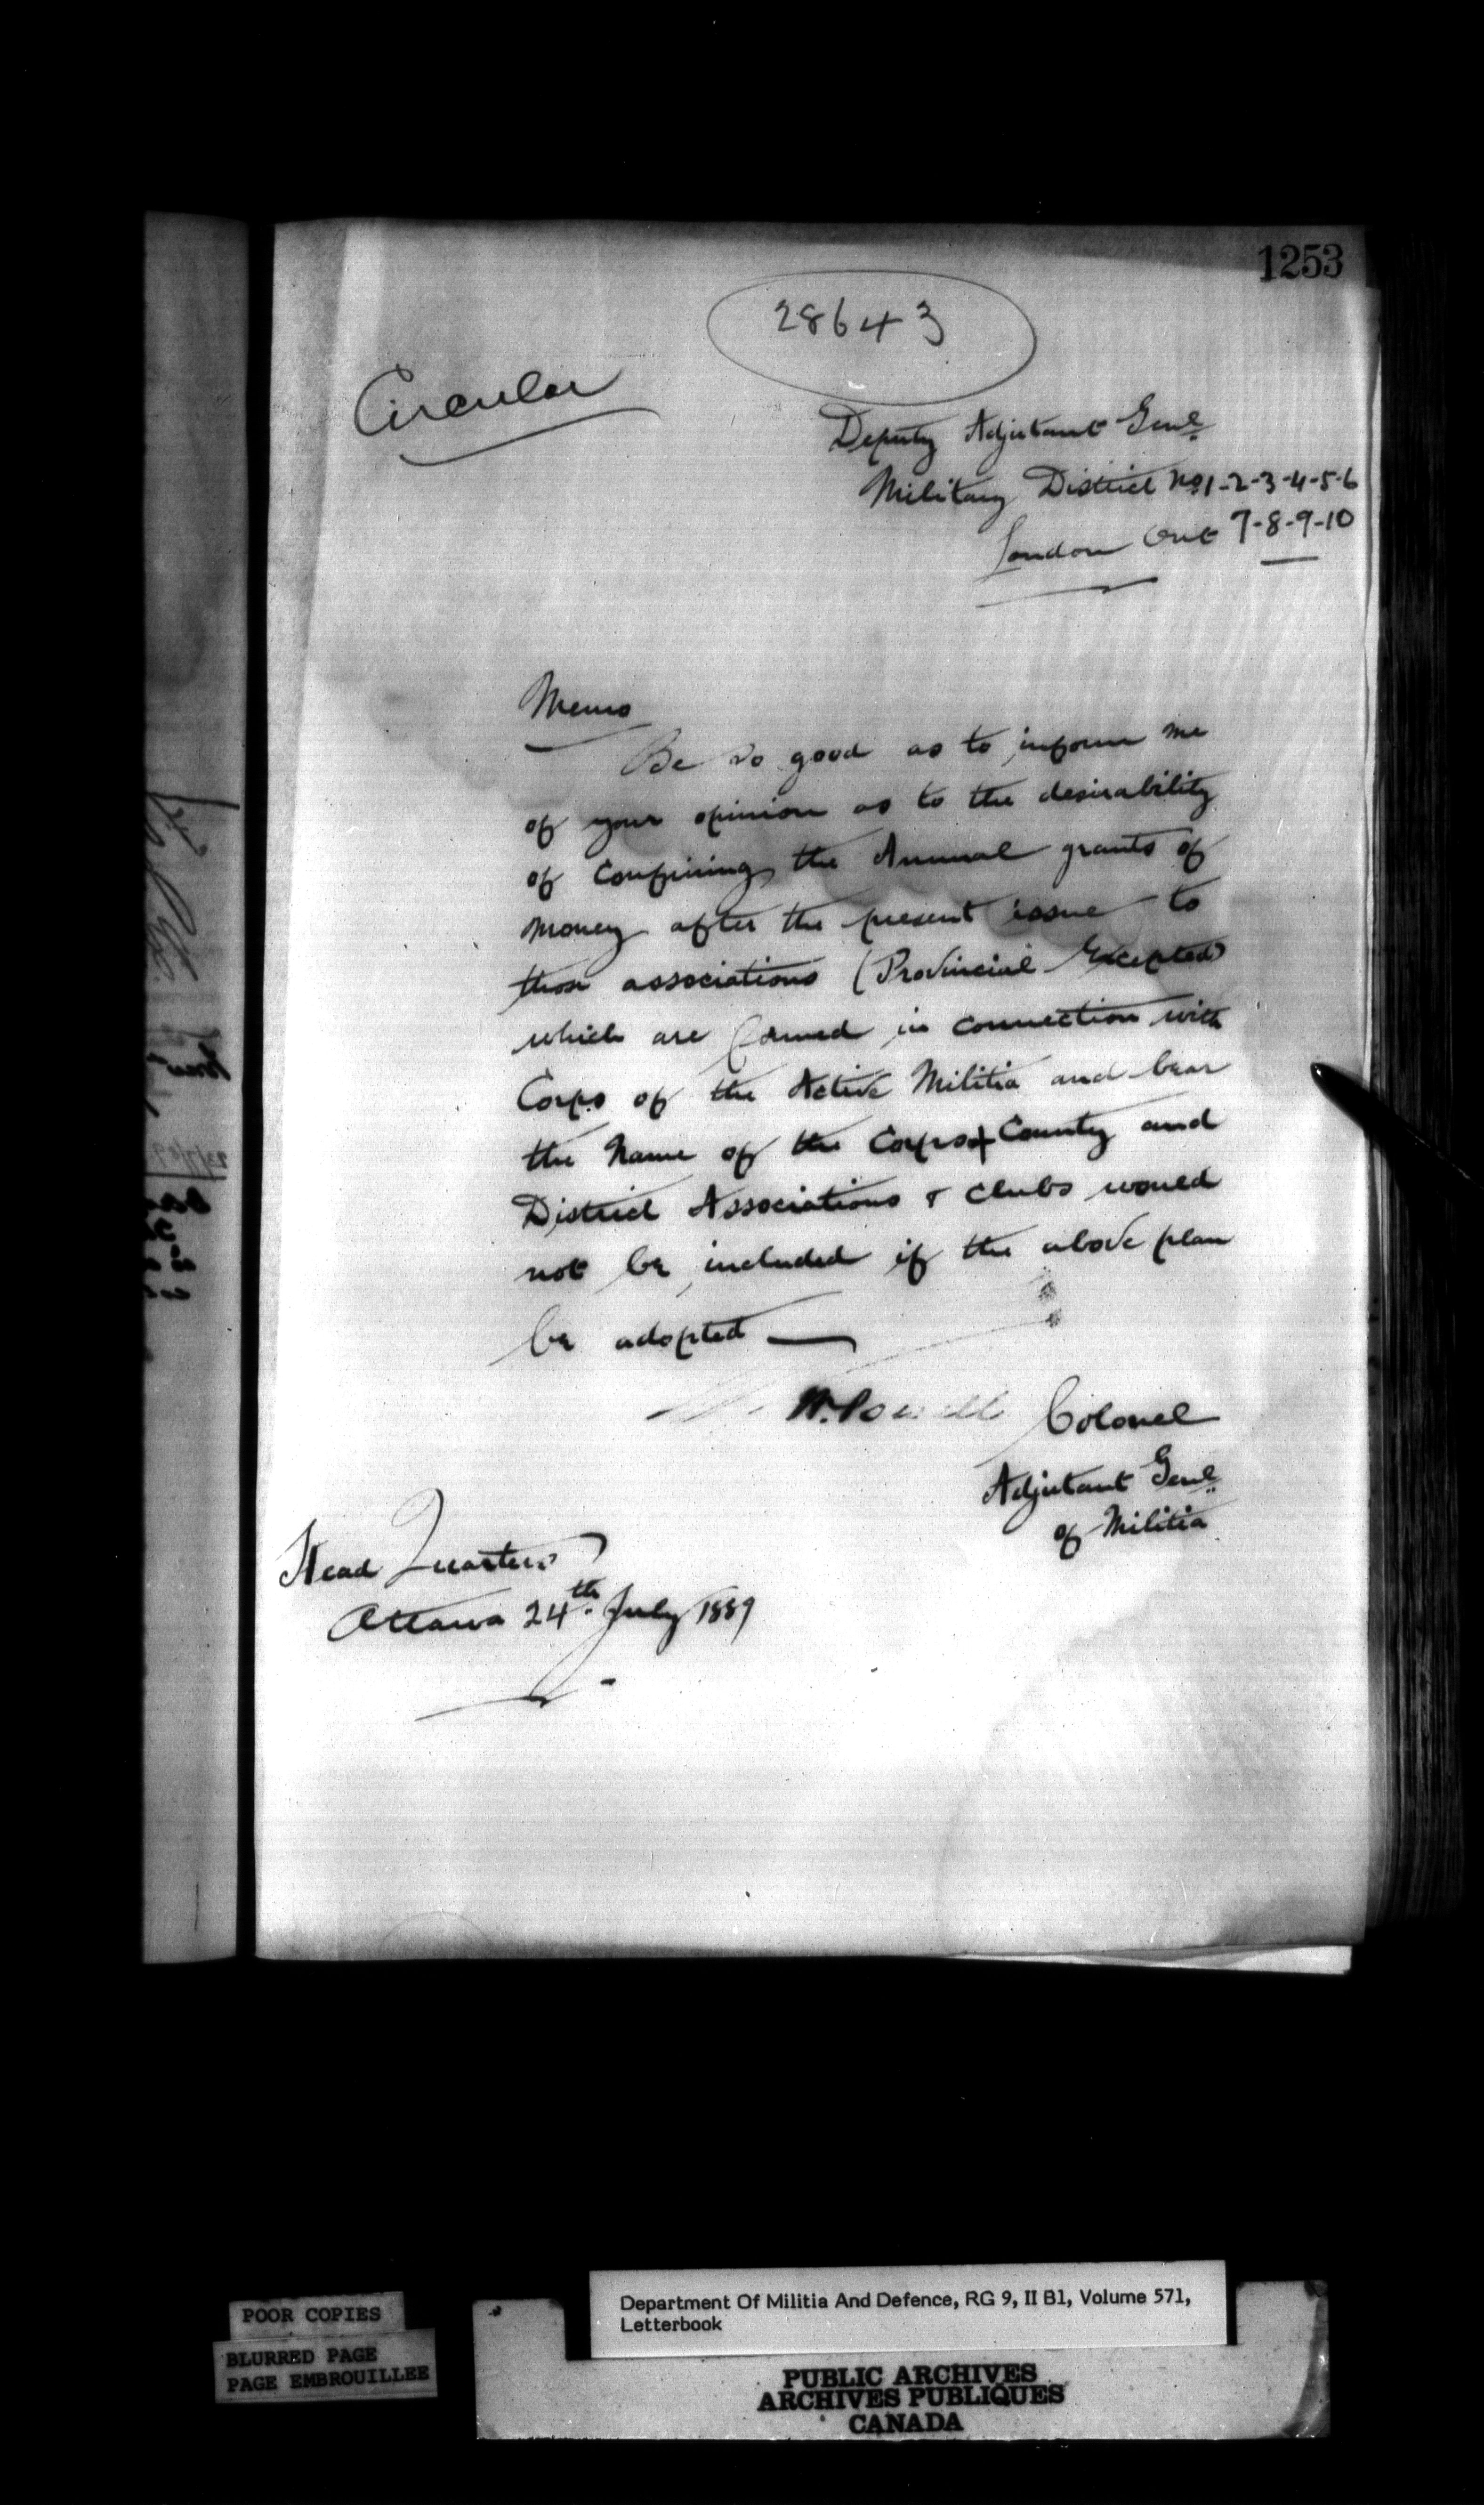 1253
28643
Circular
Deputy Adjutant Genl.
Military District No. 1-2-3-4-5-6
London Ont 7-8-9-10
Memo
Be so good as to inform me
of your opinion as to the desirability
of confining the Annual grants of
money after the present issue to
those associations (Provincial Excepted)
which are formed in connection with
Corps of the Active Militia and bear
the Name of the Corps + County and
District Associations & Clubs would
not be included if the above plan
be adopted —
W. Powell Colonel
Adjutant Genl.
of Militia
Head Quarters
Ottawa 24th. July 1889
POOR COPIES
BLURRED PAGE
PAGE EMBROUILLEE
Department Of Militia And Defence, RG 9, II B1, Volume 571,
Letterbook
PUBLIC ARCHIVES
ARCHIVES PUBLIQUES
CANADA